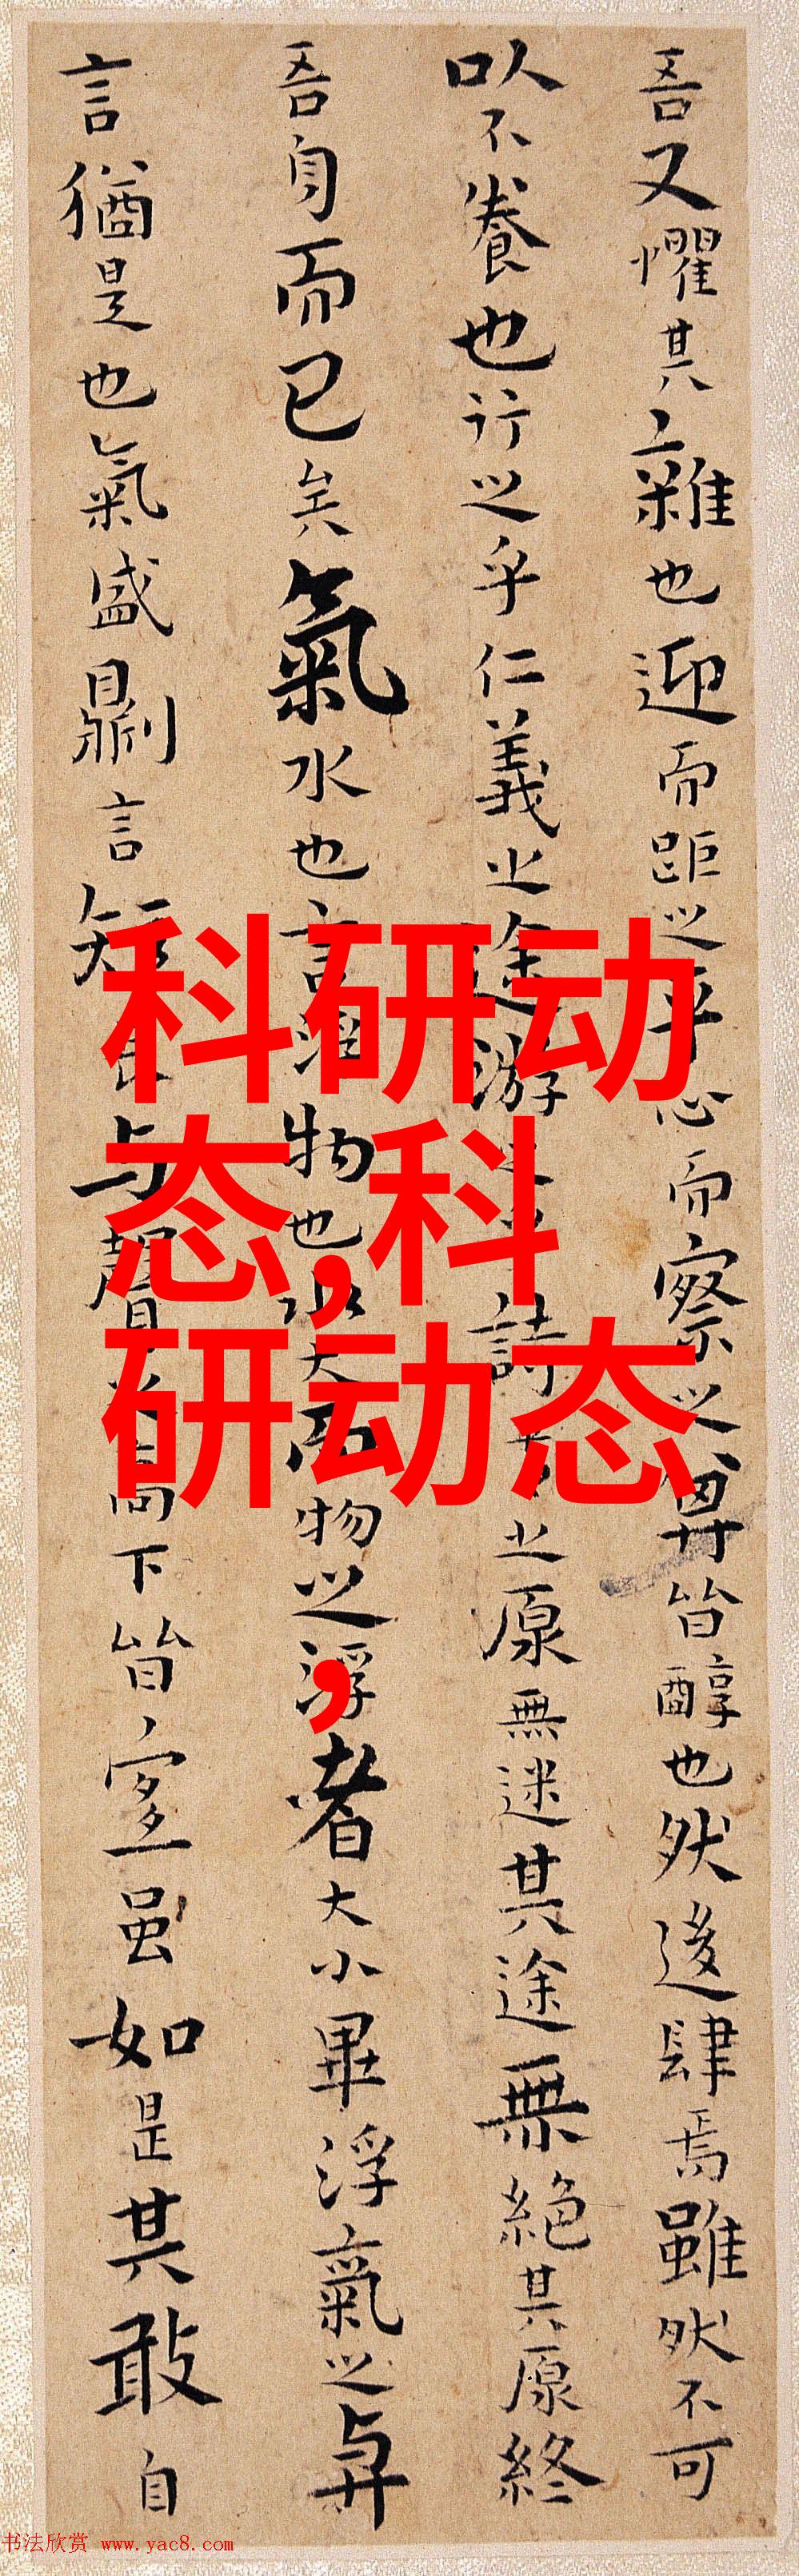 吾又懼其雜也迎而距之平心而察之其皆醇也然後肆焉雖然不可
以不養也行之乎仁義之途游之乎詩之原無迷其途無絕其原終
吾身而已矣氣水也言浮物也水大而物之浮者大小畢浮氣之與
言猶是也氣盛則言短長與聲之高下皆宜虽如是其敢自
科研动
态,科
研动态
,
书法欣赏 www.yac8.com